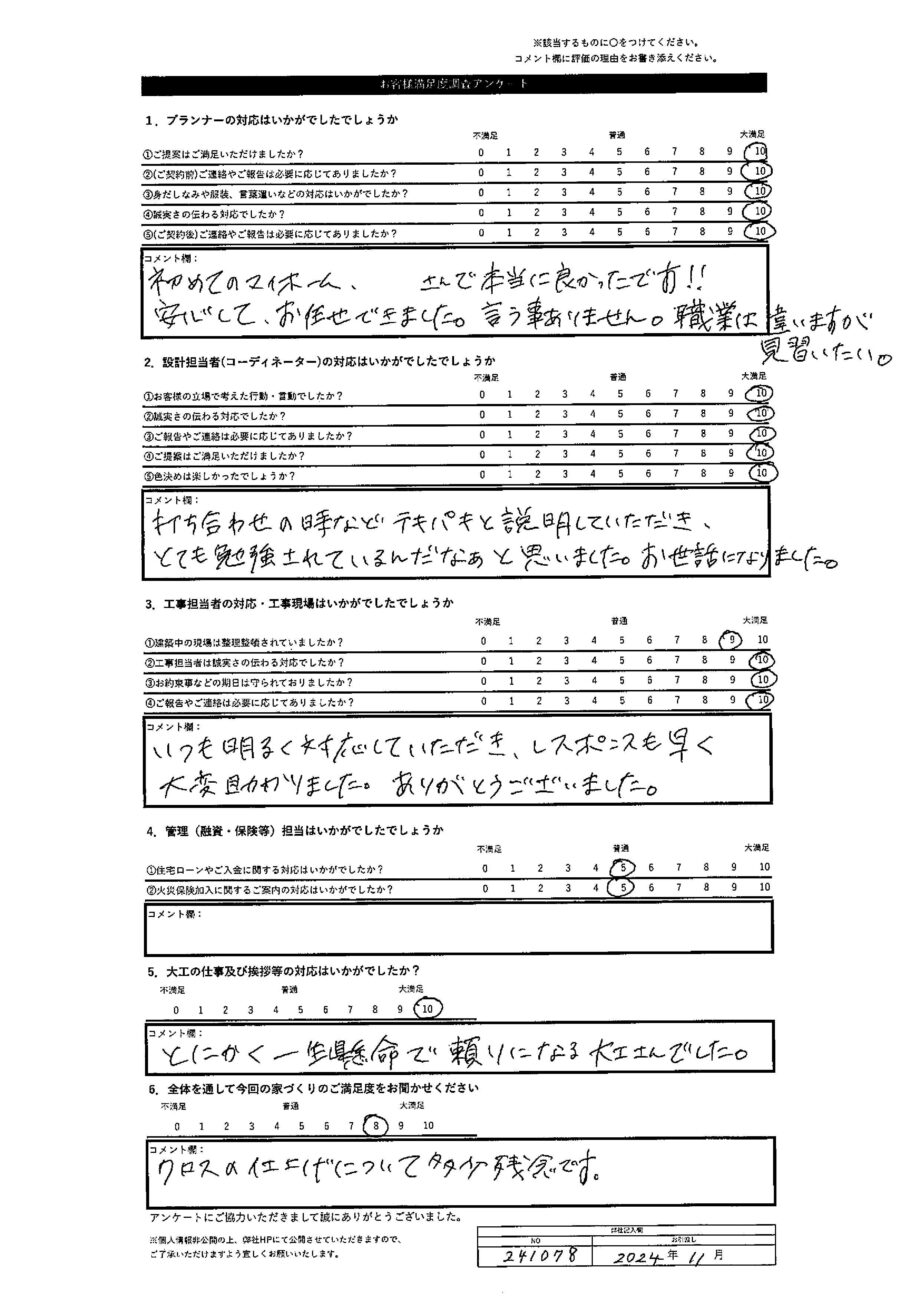 ※該当するものに○をつけてください。
コメント欄に評価の理由をお書き添えください。
お客様満足度調査アンケート
1．プランナーの対応はいかがでしたでしょうか
不満足 普通 大満足
①ご提案はご満足いただけましたか？ 0 1 2 3 4 5 6 7 8 9 10
②(ご契約前)ご連絡やご報告は必要に応じてありましたか？ 0 1 2 3 4 5 6 7 8 9 10
③身だしなみや服装、言葉遣いなどの対応はいかがでしたか？ 0 1 2 3 4 5 6 7 8 9 10
④誠実さの伝わる対応でしたか？ 0 1 2 3 4 5 6 7 8 9 10
⑤(ご契約後)ご連絡やご報告は必要に応じてありましたか？ 0 1 2 3 4 5 6 7 8 9 10
コメント欄：
初めてのマイホーム、 さんで本当に良かったです!!
安心して、お任せできました。言う事ありません。職業は違いますが
見習いたい。
2．設計担当者(コーディネーター)の対応はいかがでしたでしょうか
不満足 普通 大満足
①お客様の立場で考えた行動・言動でしたか？ 0 1 2 3 4 5 6 7 8 9 10
②誠実さの伝わる対応でしたか？ 0 1 2 3 4 5 6 7 8 9 10
③ご報告やご連絡は必要に応じてありましたか？ 0 1 2 3 4 5 6 7 8 9 10
④ご提案はご満足いただけましたか？ 0 1 2 3 4 5 6 7 8 9 10
⑤色決めは楽しかったでしょうか？ 0 1 2 3 4 5 6 7 8 9 10
コメント欄：
打ち合わせの時などテキパキと説明していただき、
とても勉強されているんだなぁと思いました。お世話になりました。
3．工事担当者の対応・工事現場はいかがでしたでしょうか
不満足 普通 大満足
①建築中の現場は整理整頓されていましたか？ 0 1 2 3 4 5 6 7 8 9 10
②工事担当者は誠実さの伝わる対応でしたか？ 0 1 2 3 4 5 6 7 8 9 10
③お約束事などの期日は守られておりましたか？ 0 1 2 3 4 5 6 7 8 9 10
④ご報告やご連絡は必要に応じてありましたか？ 0 1 2 3 4 5 6 7 8 9 10
コメント欄：
いつも明るく対応していただき、レスポンスも早く
大変助かりました。ありがとうございました。
4．管理（融資・保険等）担当はいかがでしたでしょうか
不満足 普通 大満足
①住宅ローンやご入金に関する対応はいかがでしたか？ 0 1 2 3 4 5 6 7 8 9 10
②火災保険加入に関するご案内の対応はいかがでしたか？ 0 1 2 3 4 5 6 7 8 9 10
コメント欄：
5．大工の仕事及び挨拶等の対応はいかがでしたか？
不満足 普通 大満足
0 1 2 3 4 5 6 7 8 9 10
コメント欄：
とにかく一生懸命で頼りになる大工さんでした。
6．全体を通して今回の家づくりのご満足度をお聞かせください
不満足 普通 大満足
0 1 2 3 4 5 6 7 8 9 10
コメント欄：
クロスの仕上げについて多少残念です。
アンケートにご協力いただきまして誠にありがとうございました。
※個人情報非公開の上、弊社HPにて公開させていただきますので、
ご了承いただけますよう宜しくお願いいたします。
弊社記入欄
NO お引渡し
241078 2024年 11月